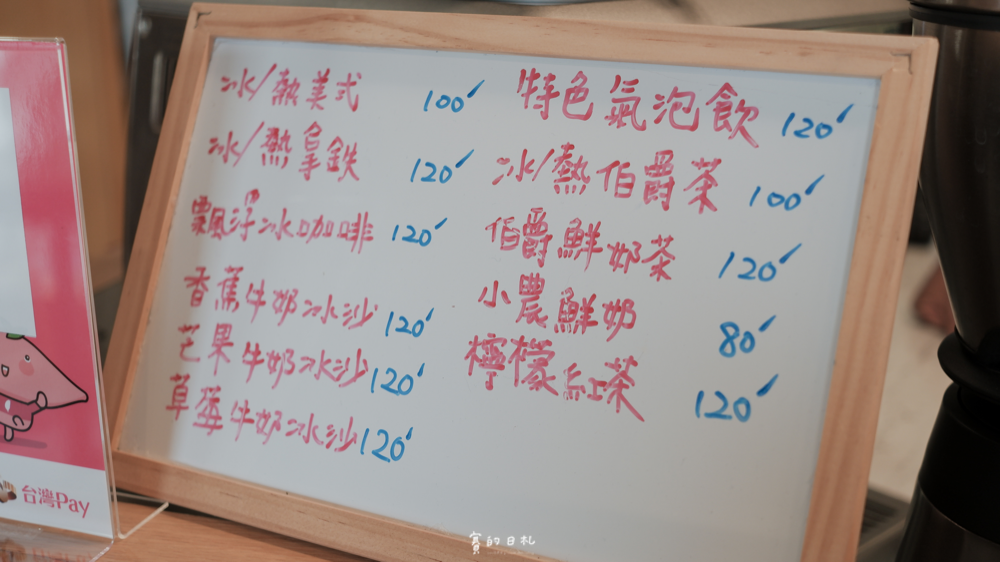 冰/熱美式 100
冰/熱拿鉄 120
飄浮冰咖啡 120
香蕉牛奶冰沙 120
芒果牛奶冰沙 120
草莓牛奶冰沙 120
特色氣泡飲 120
冰/熱伯爵茶 100
伯爵鮮奶茶 120
小農鮮奶 80
檸檬紅茶 120
台灣Pay
賽的日札